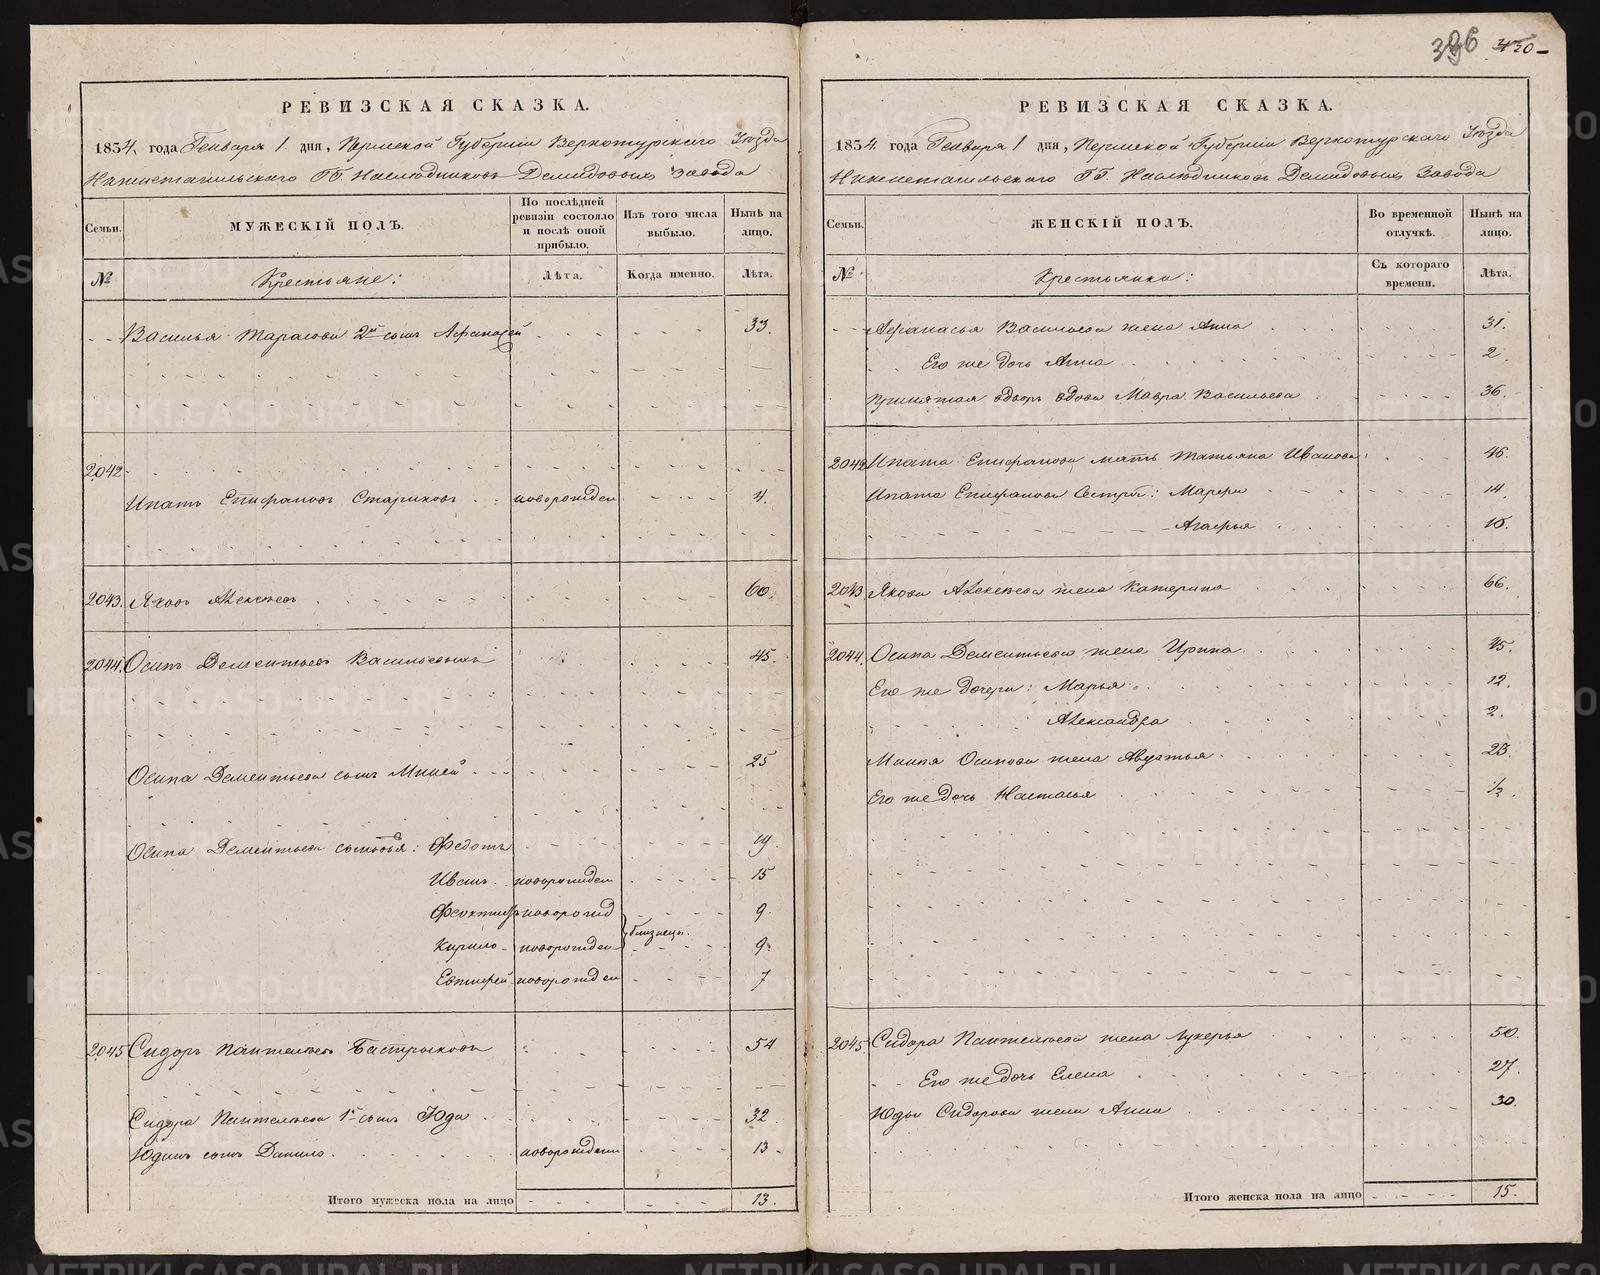 396 430
РЕВИЗСКАЯ СКАЗКА.
1834 года Генваря 1 дня, Пермской Губерніи Верхотурскаго Уѣзда
Нижнетагильскаго ГГ. Наслѣдниковъ Демидовыхъ Завода
Семьи.
МУЖЕСКІЙ ПОЛЪ.
По послѣдней ревизіи состояло и послѣ оной прибыло.
Изъ того числа выбыло.
Нынѣ на лицо.
№ Крестьяне: Лѣта. Когда именно. Лѣта.
Василья Тарасова 2й сынъ Афанасей 33.
2042
Ипатъ Епифановъ Стариковъ новорожден 4.
2043. Яковъ Алексѣевъ 60.
2044. Осипъ Дементьевъ Васильевыхъ 45.
Осипа Дементьева сынъ Миней 25
Осипа Дементьева сыновья: Федотъ 19.
Иванъ новорожден 15
Феоктистъ новорожд 9.
близнецы.
Кирило новорожден 9.
Евтифей новорожден 7
2045 Сидоръ Пантелѣевъ Бастрыковъ 54
Сидора Пантелѣева 1й сынъ Юда 32.
Юдинъ сынъ Данило новорожден 13
Итого мужеска пола на лицо 13.
РЕВИЗСКАЯ СКАЗКА.
1834 года Генваря 1 дня, Пермской Губерніи Верхотурскаго Уѣзда
Нижнетагильскаго ГГ. Наслѣдниковъ Демидовыхъ Завода
Семьи.
ЖЕНСКІЙ ПОЛЪ.
Во временной отлучкѣ.
Нынѣ на лицо.
№ Крестьянки: Съ котораго времени. Лѣта.
Афанасья Васильева жена Анна 31.
Его же дочь Анна 2.
Принятая вдворъ вдова Мавра Васильева 36.
2042 Ипата Епифанова мать Татьяна Иванова 46.
Ипата Епифанова Сестры: Марфа 14.
Агафья 10.
2043 Якова Алексѣева жена Катерина 66.
2044 Осипа Дементьева жена Ирина 45.
Его же дочери: Марья 12.
Александра 2.
Минея Осипова жена Авдотья 23.
Его же дочь Настасья ½.
2045 Сидора Пантелѣева жена Лукерья 50.
Его же дочь Елена 27.
Юды Сидорова жена Анна 30.
Итого женска пола на лицо 15.
METRIKI.GASO-URAL.RU